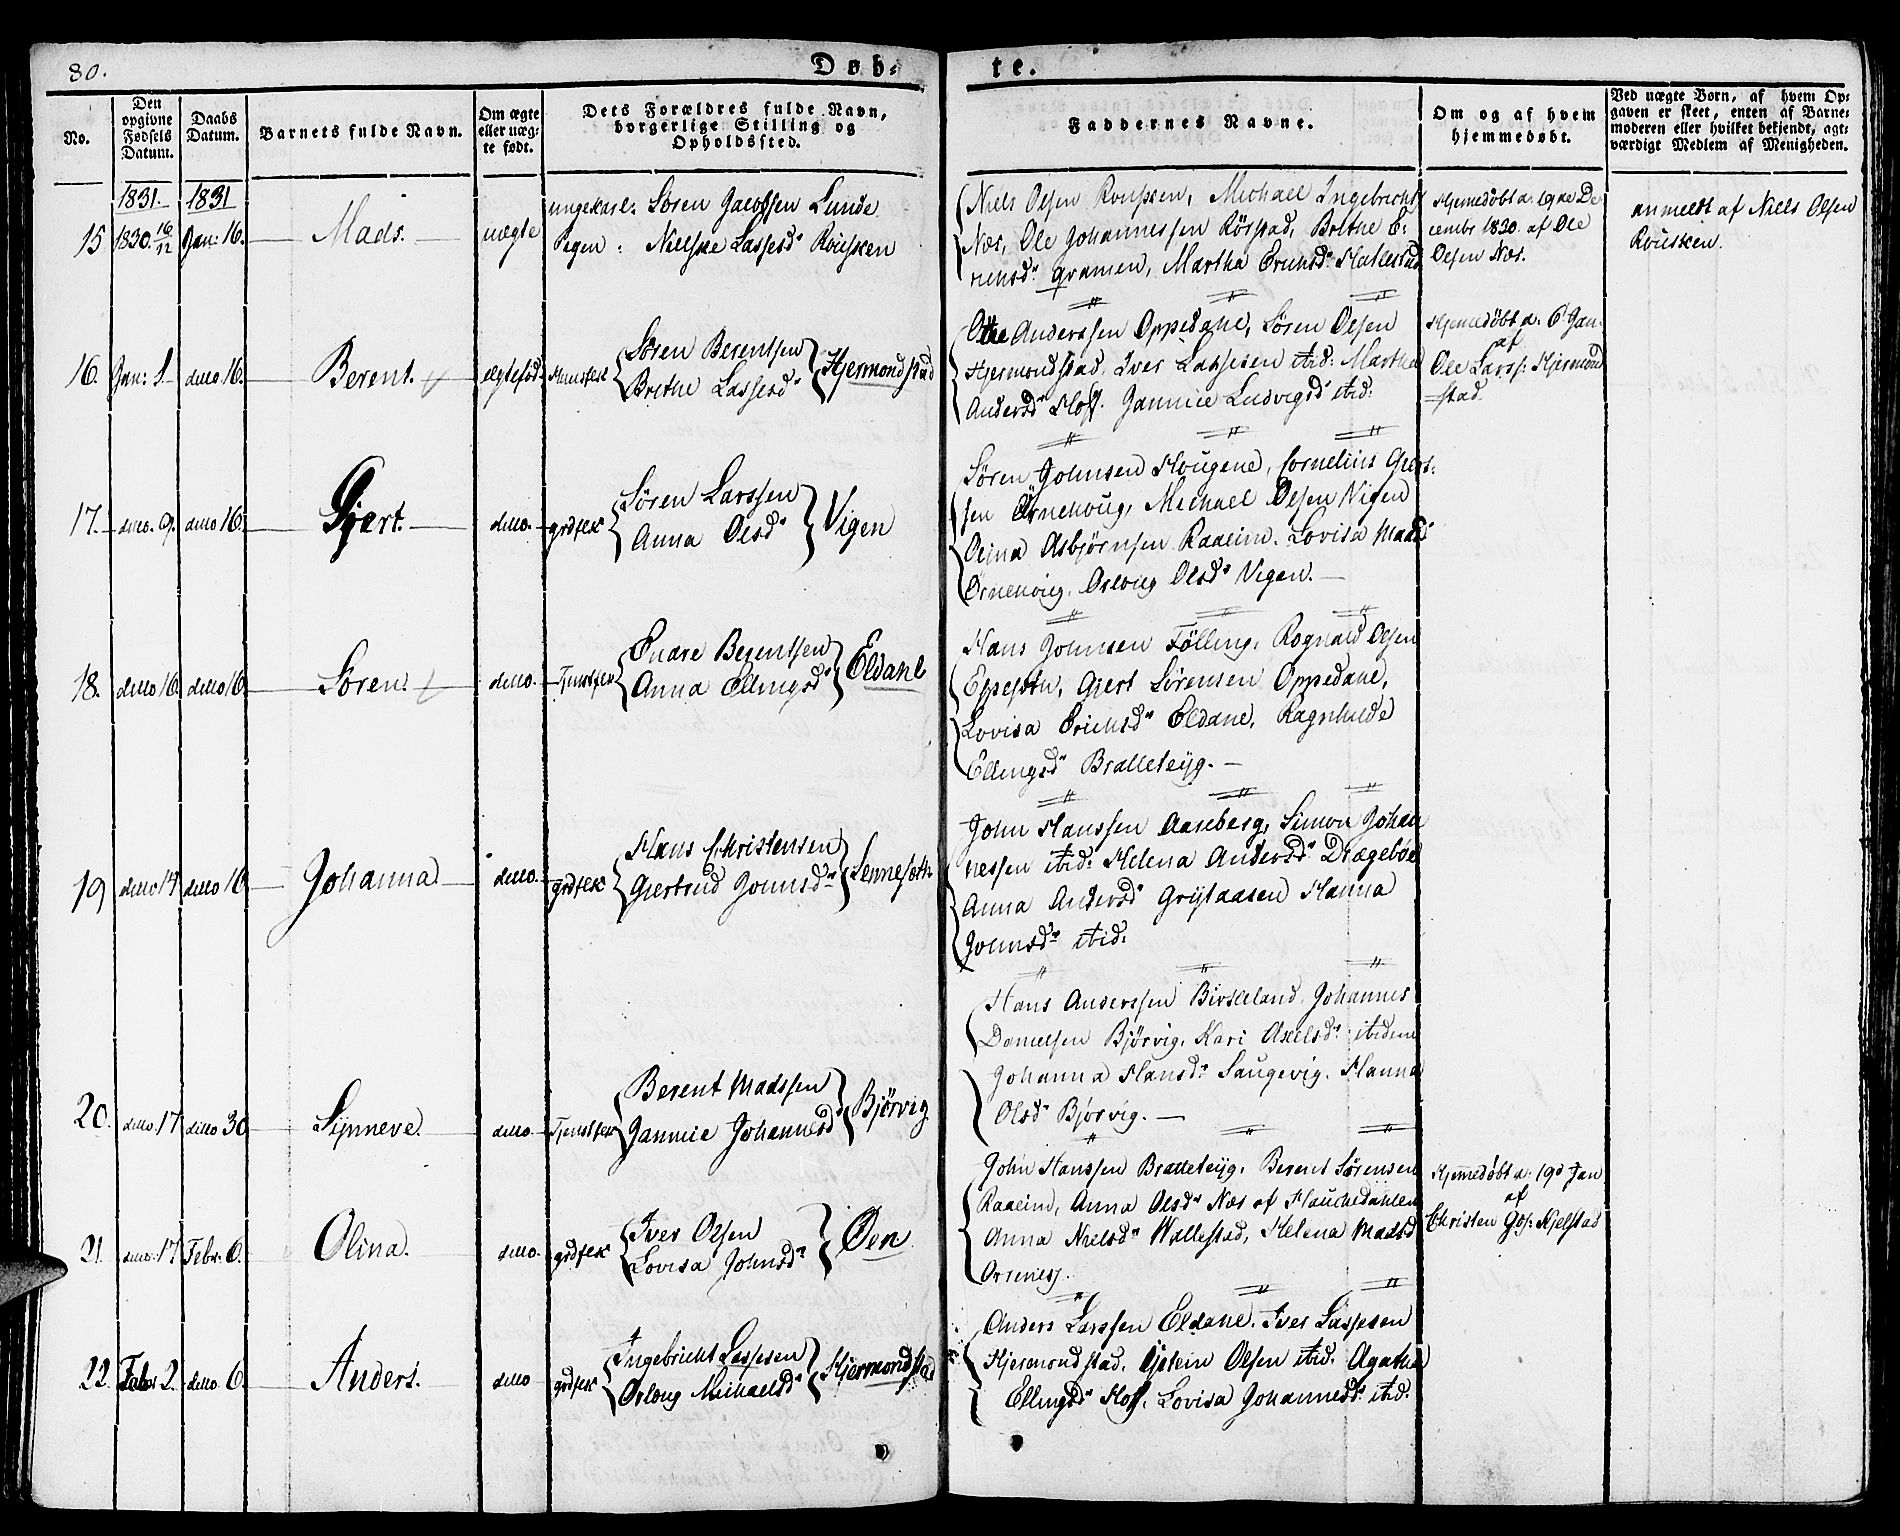 80.
Døb-
te.
No.
Den opgivne Fødsels Datum.
Daabs Datum.
Barnets fulde Navn.
Om ægte eller uæg- te født.
Dets Forældres fulde Navn, borgerlige Stilling og Opholdssted.
Faddernes Navne.
Om og af hvem hjemmedøbt.
Ved uægte Børn, af hvem Op- gaven er skeet, enten af Barne- moderen eller hvilket bekjendt, agt- værdigt Medlem af Menigheden.
1831. 1831
15 1830. 16/12 Jan: 16. Mads. uægte
ungekarl: Søren Jacobsen Lunde
Pigen: Lassesd. Rousken
Niels Olsen Rousken, Michael Ingebrechts
Næs, Ole Johannessen Rørstad, Brithe E:
richsd. Gramen, Martha Erichsd. Hallestad
Hjemedøbt d. 19de De-
cembr 1830 af Ole
Olsen Næs.
anmeldt af Niels Olsen
Rousken.
16. Jan: 1. ditto 16. Berent. ægtefød.
Søren Berentsen
Brithe Lassesd. Hjermondstad
Anderssen Oppedahl, Søren Olsen
Hjermondstad, Iver Lassesen ibid: Martha
Andersd. Hoff. Jannicie Ludvigsd ibid:
Hjemedøbt d. 6 Jan.
af
Ole Larss: Hjermond
stad.
17. ditto. 9. ditto 16. Gjert. ditto. grdfck
Søren Larssen
Anna Olsd. Vigen
Søren Johnsen Hougene, Cornelius Gjert-
sen Ørnehoug, Michael Olsen Vigen
Olina Asbjørnsen Raaeim. Lovisa Mads.
Ørnehoug, Osloug Olsd. Vigen.
18. ditto 16. ditto 16. Søren. ditto.
Berentsen
Anna Ellingsd. Eldahl
Hans Johnsen Tølling, Rognald Olsen
Gjert Sørensen Oppedahl,
Lovisa Erichsd. Eldahl, Ragnhilde
Ellingsd. Bratteteijg.
19 ditto 14 ditto 16 Johanna. ditto. grdfck
Hans Christensen
Gjertrud Johnsd.
John Hanssen Aaseberg, Simon Johan
nessen ibid: Helena Andersd. Drægebøe
Anna Andersd. Grytaasen Hanna
Johnsd. ibid:
20. ditto. 17 ditto 30 Synneve. ditto.
Berent Madssen
Jannicie Johannesd. Bjørvig
Hans Anderssen Birkeland, Johannes
Danielsen Bjørvig, Kari Axelsd. ibidem
Johanna Hansd. Saugevig. Hanna
Olsd. Bjørvig.
21. ditto. 17 Febr: 6. Olina. ditto. grdfck
Iver Olsen
Lovisa Johnsd. Øen
John Hanssen Bratteteijg. Berent Sørensen
Raaeim, Anna Olsd. Næs af Haukedahlen
Anna Nielsd. Wallestad, Helena Madsd
Hjemmedøbt d. 19d Jan
af
Christen Kjelstad
22. Febr 2. ditto 6. Anders. ditto grdfck
Ingebricht Lassesen
Osloug Michaelsd. Hjermondstad
Anders Larssen Eldahl. Iver Lassesen
Hjermondstad. Olsen ibid. Agatha
Ellingsd. Hoff, Lovisa Johannesd. ibid.